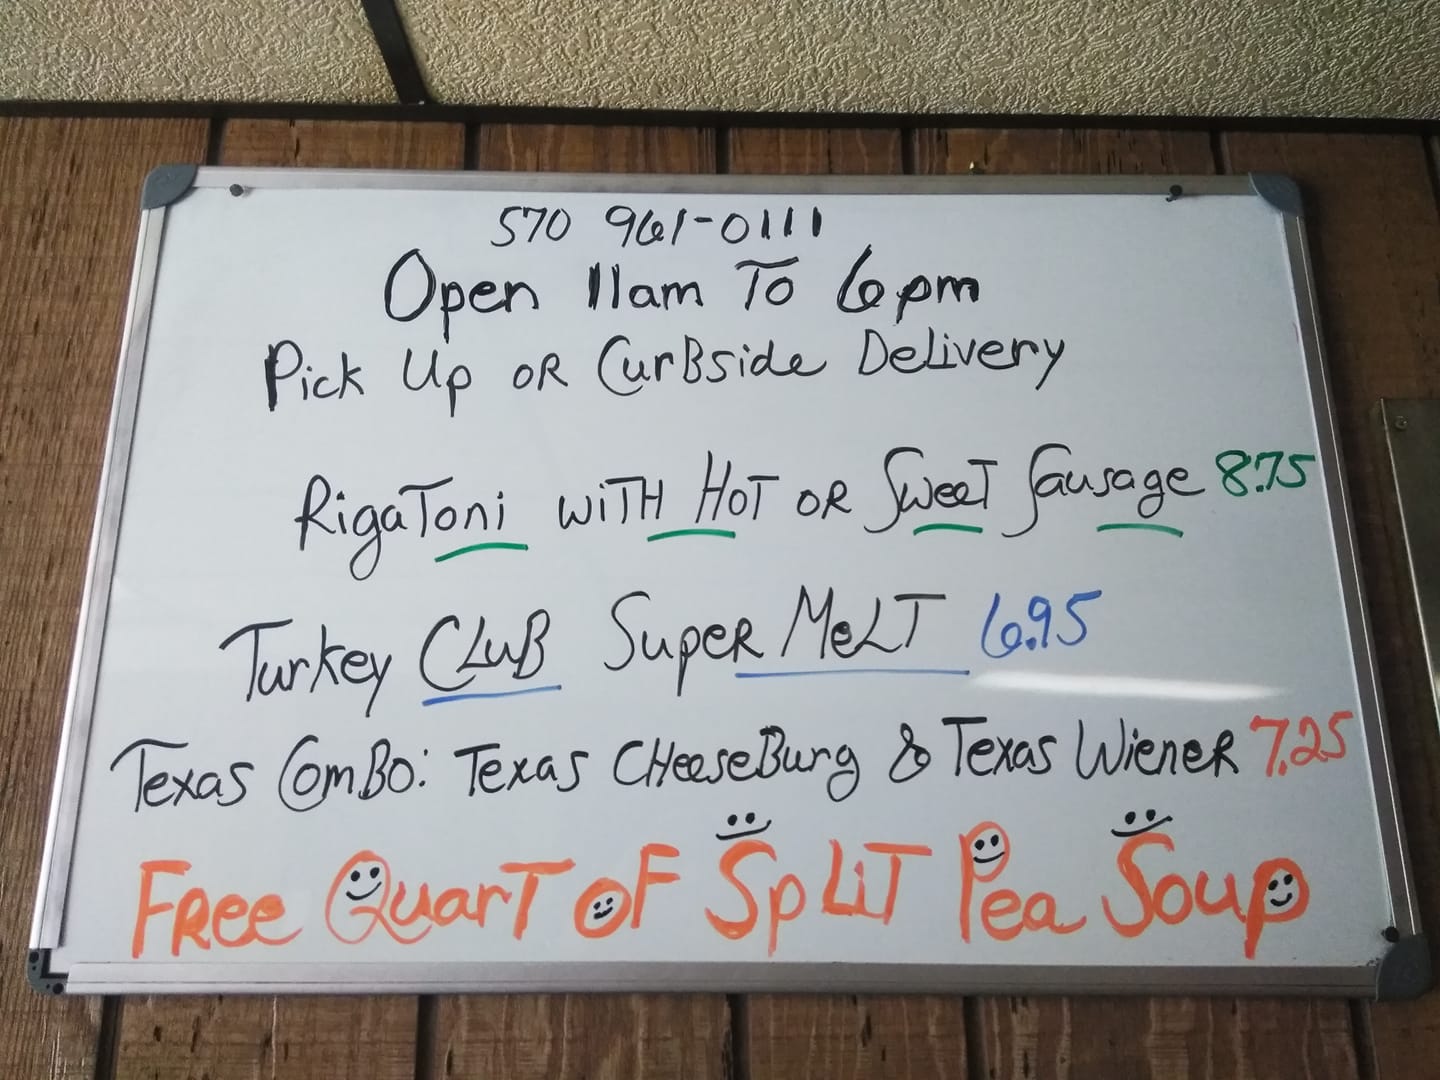 570 961-0111
Open 11am To 6pm
Pick Up OR CurBside Delivery
RigaToni WiTH HoT OR SweeT Sausage 8.75
Turkey CLuB SupeR MeLT 6.95
Texas ComBo: Texas CHeeseBurg & Texas WieneR 7.25
FRee QuarT oF SpLiT Pea Soup